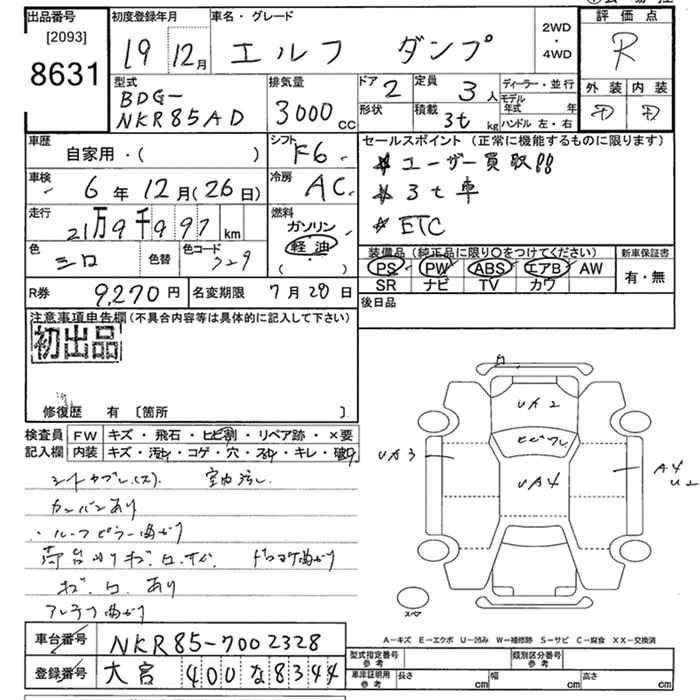 出品番号
[2093]
8631
初度登録年月
19 12月
車名・グレード
エルフ ダンプ
2WD
・
4WD
評価点
R
外装 内装
D D
型式
BDG-
NKR85AD
排気量
3000 cc
ドア 2
定員 3人
形状
積載 3t kg
ディーラー・並行
モデル年式 年
ハンドル 左・右
車歴
自家用・( )
シフト F6
車検
6年12月(26日)
冷房 AC
走行
21万9千997 km
燃料
ガソリン
軽油
( ・ )
色
シロ
色替
色コード
729
セールスポイント(正常に機能するものに限ります)
ユーザー買取!!
3t車
ETC
装備品(純正品に限り○をつけてください)
PS PW ABS エアB AW
SR ナビ TV カワ
新車保証書
有・無
R券 9,270円
名変期限 7月28日
後日品
注意事項申告欄(不具合内容等は具体的に記入して下さい)
初出品
修復歴 有 〔箇所 〕
検査員 FW キズ・飛石・ヒビ割・リペア跡・×要
記入欄 内装 キズ・汚れ・コゲ・穴・スレ・キレ・破れ
室内汚し
カンバンあり
・ルーフピラー曲がり
あり
曲がり
UA2
ヒビワレ
UA3
UA4
A4
U2
スペア
A−キズ E−エクボ U−凹み W−補修跡 S−サビ C−腐食 XX−交換済
車台番号 NKR85-7002328
登録番号 大宮 400 な 8344
型式指定番号
参考
類別区分番号
参考
車庫証明用
参考
長さ cm 幅 cm 高さ cm